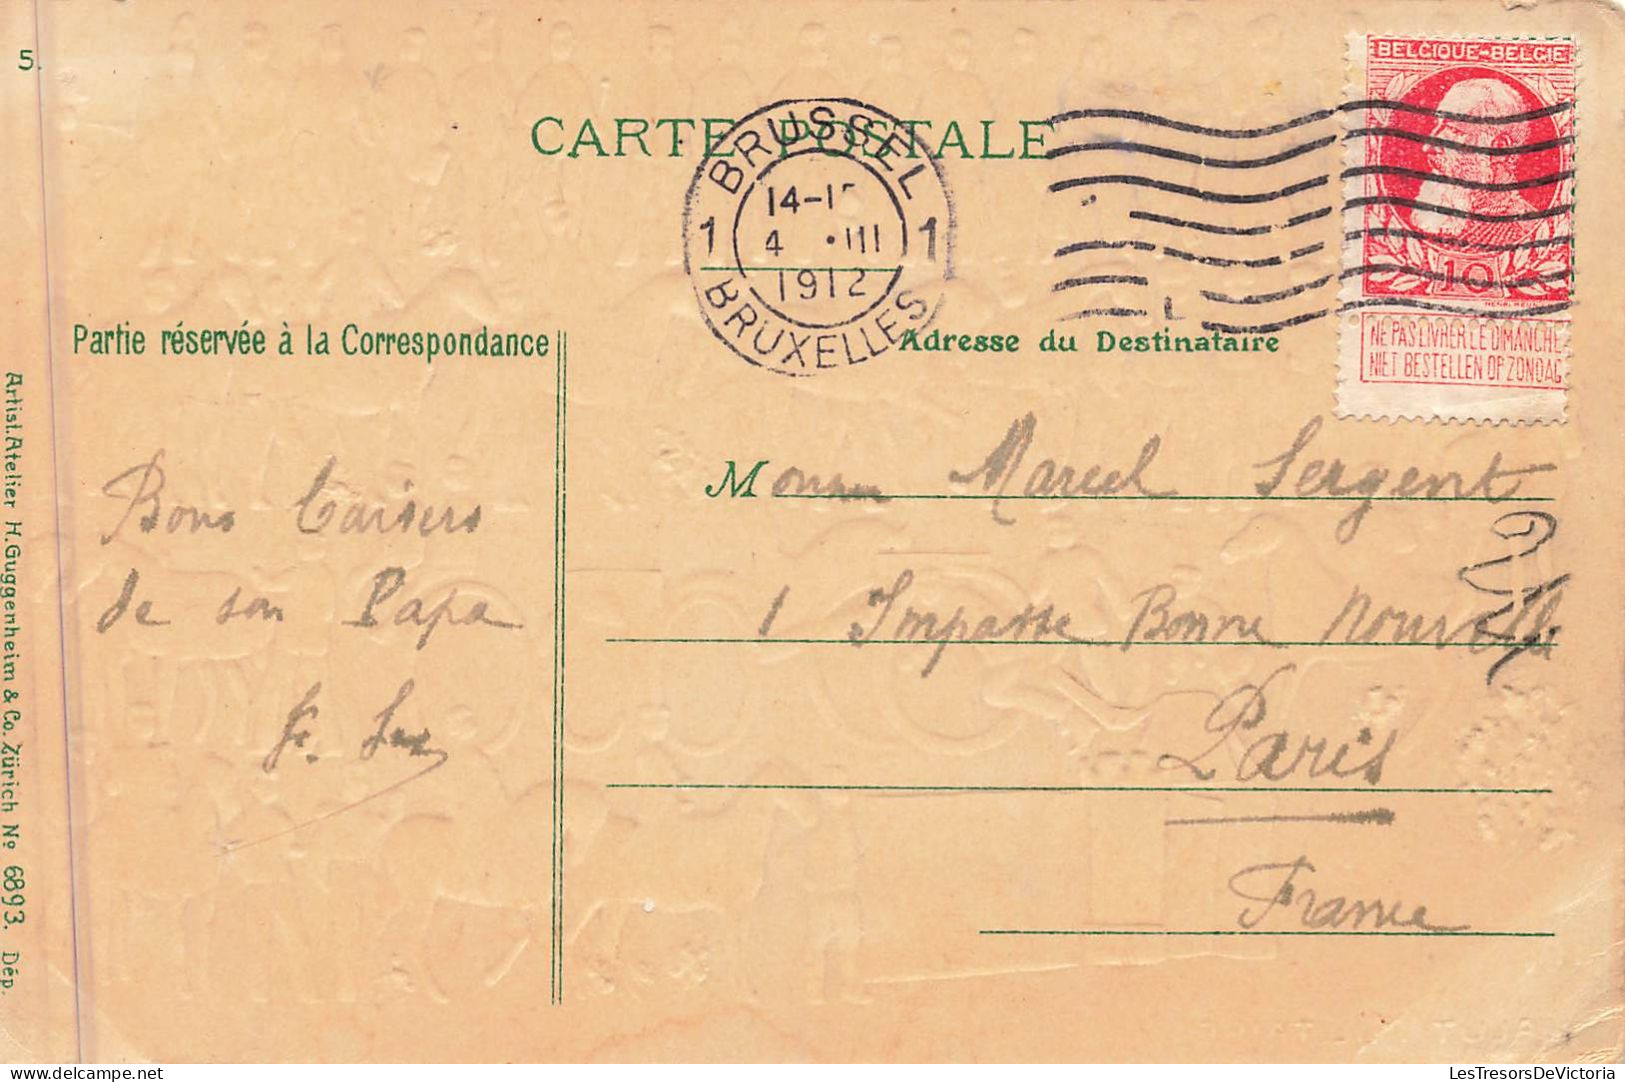 5.
CARTE POSTALE
BRUSSEL
1 14-1 1
4 ·III
1912
BRUXELLES
BELGIQUE-BELGIE
10
NE PAS LIVRER LE DIMANCHE
NIET BESTELLEN OP ZONDAG
Partie réservée à la Correspondance
Adresse du Destinataire
Bons baisers
de son Papa
M Marcel Sergent
1 Impasse Bonne Nouvelle
Paris
France
Artist. Atelier H. Guggenheim & Co. Zürich No 6893. Dép.
delcampe.net
LesTresorsDeVictoria